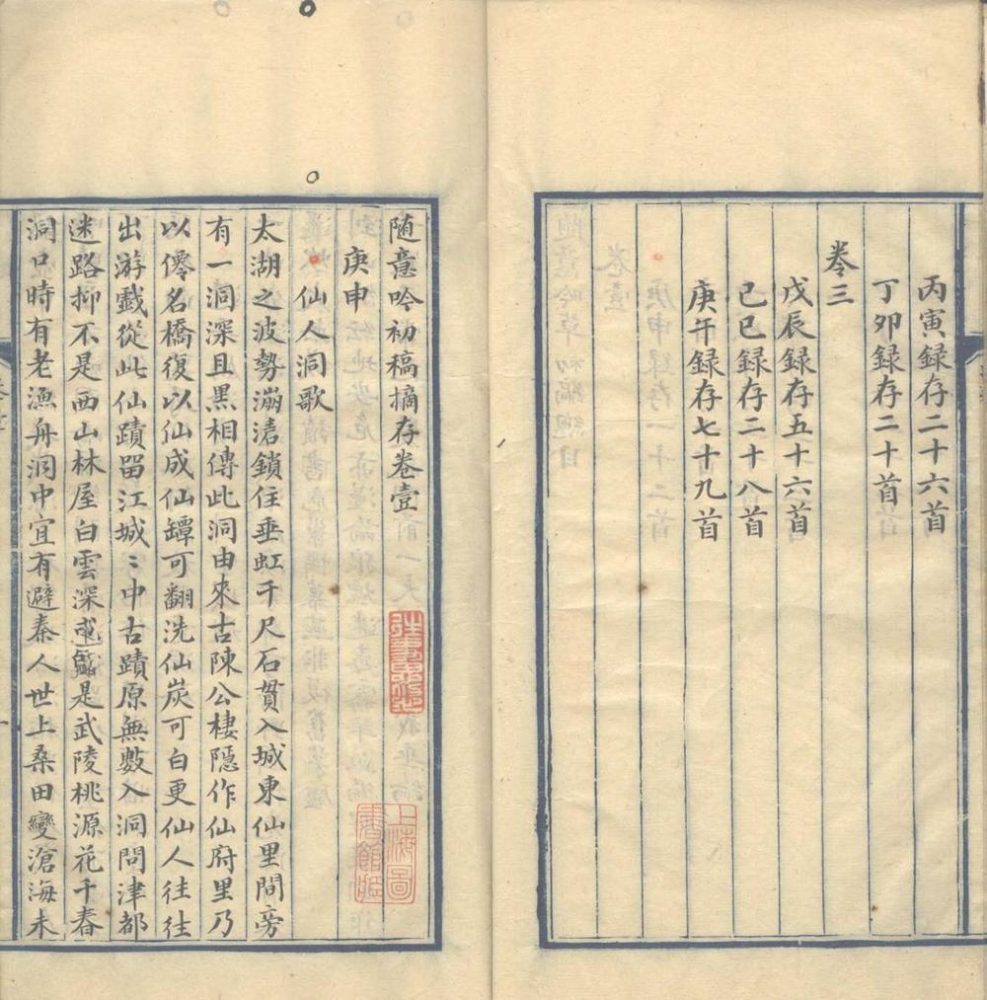 丙寅録存二十六首
丁卯録存二十首
卷三
戊辰録存五十六首
己巳録存二十八首
庚午録存七十九首
随意吟初稿摘存卷壹
庚申
仙人洞歌
太湖之波勢滃滃鎖住垂虹千尺石貫入城東仙里間旁
有一洞深且黑相傳此洞由來古陳公棲隱作仙府里乃
以僊名橋復以仙成仙罈可翻洗仙炭可白更仙人往往
出游戲從此仙蹟留江城〻中古蹟原無數入洞問津都
迷路抑不是西山林屋白雲深是武陵桃源花千春
洞口時有老漁舟洞中宜有避秦人世上桑田變滄海未
上海圖
書館藏